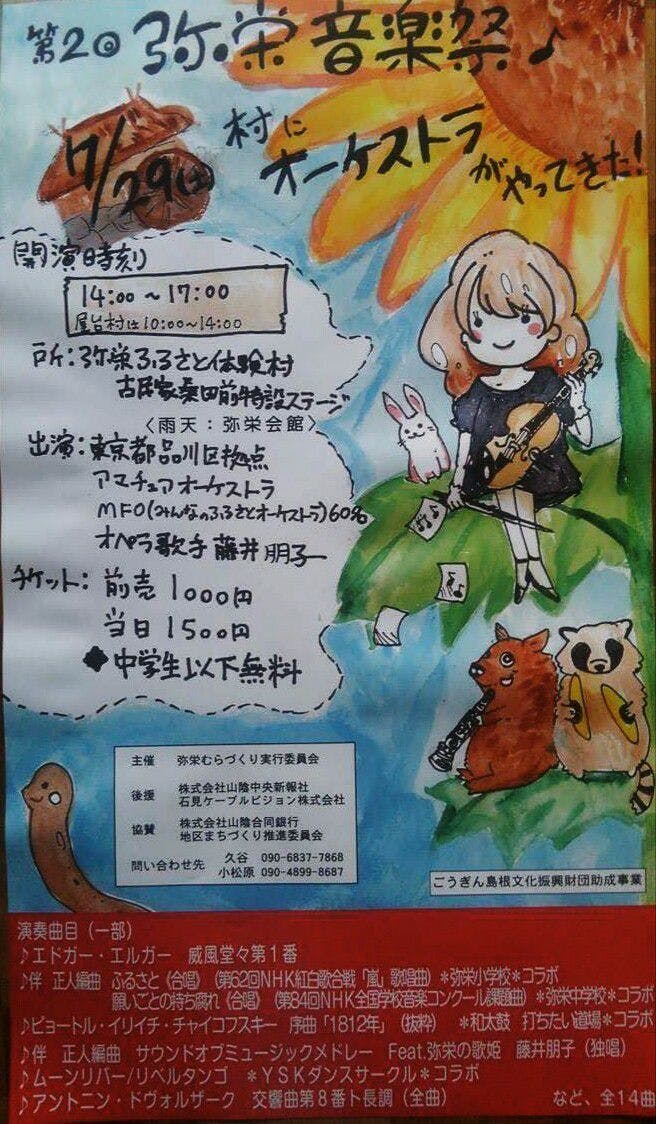 第2回 弥栄音楽祭♪
7/29(土)
村に
オーケストラ
がやってきた!
開演時刻
14:00～17:00
屋台村は10:00～14:00
戸所:弥栄ふるさと体験村
古民家桑田前特設ステージ
〈雨天:弥栄会館〉
出演:東京都品川区拠点
アマチュアオーケストラ
MFO(みんなのふるさとオーケストラ)60名
オペラ歌手 藤井朋子
チケット: 前売 1000円
当日 1500円
◆中学生以下無料
主催 弥栄むらづくり実行委員会
後援 株式会社山陰中央新報社
石見ケーブルビジョン株式会社
協賛 株式会社山陰合同銀行
地区まちづくり推進委員会
問い合わせ先 久谷 090-6837-7868
小松原 090-4899-8687
ごうぎん島根文化振興財団助成事業
演奏曲目(一部)
♪エドガー・エルガー 威風堂々第1番
♪伴 正人編曲 ふるさと《合唱》(第62回NHK紅白歌合戦「嵐」歌唱曲)＊弥栄小学校＊コラボ
願いごとの持ち腐れ《合唱》(第84回NHK全国学校音楽コンクール課題曲)＊弥栄中学校＊コラボ
♪ピョートル・イリイチ・チャイコフスキー 序曲「1812年」(抜粋) ＊和太鼓 打ちたい道場＊コラボ
♪伴 正人編曲 サウンドオブミュージックメドレー Feat.弥栄の歌姫 藤井朋子(独唱)
♪ムーンリバー/リベルタンゴ ＊YSKダンスサークル＊コラボ
♪アントニン・ドヴォルザーク 交響曲第8番ト長調(全曲) など、全14曲